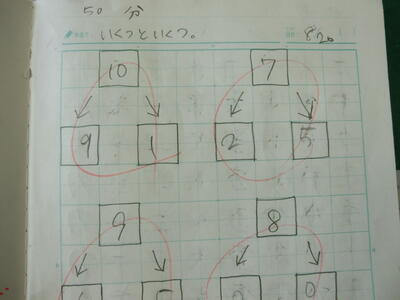 50 分
いくつといくつ。 8/20
10 7
9 1 2 5
9 8
0